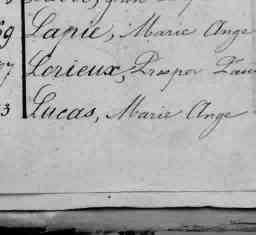 69 Lapie, Marie Ange
Lorieux, Prosper
3 Lucas, Marie Ange